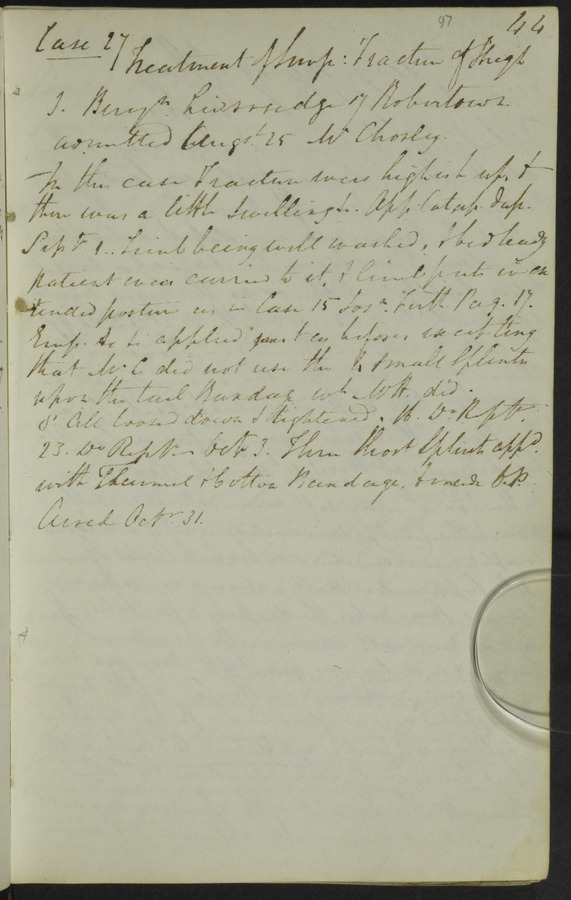 97 44
Case 27
Treatment of Simp: Fracture of Thigh
J. Benjn. of Robertown
admitted Augst. 25 Mr Chorley.
In this case Fracture was high up, &
there was a little swelling. App Catap.
Sept. 1. Limb being well washed, & bed ready
patient was carried to it, & limb put in ex
tended posture as in Case 15 Josh. Firth Pag. 17.
Emp. &c applied just as before, excepting
that Mr C did not use the small Splints
upon the tail Bandage wh. Mr H. did.
8 All loosed down & tightened. Do Reptr.
23. Do Reptr. - Octr 3. Three Short Splints appd.
with Flannel & Cotton Bandage, & made O.P.
Cured Octr 31.